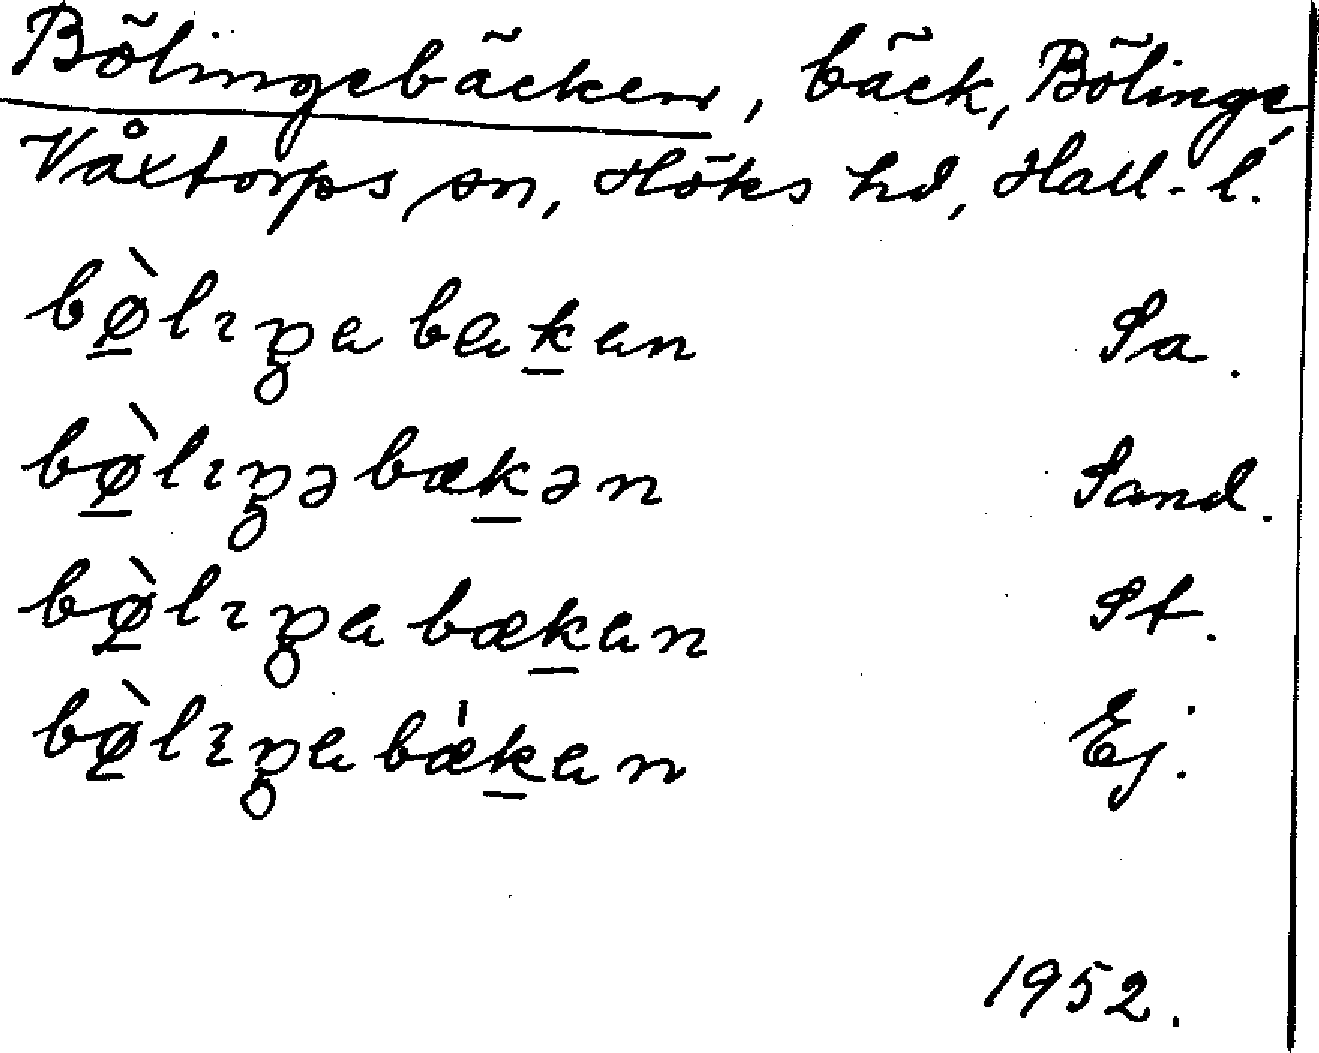 Bölingebäcken, bäck, Bölinge,
Våxtorps sn, Höks hd, Hall. l.
bø̱̀lɪŋabaḵan Sa.
bø̱̀lɪŋəbæḵən Sand.
bø̱̀lɪŋabæḵan St.
bø̱̀lɪŋabæ̍ḵan Ej.
1952.